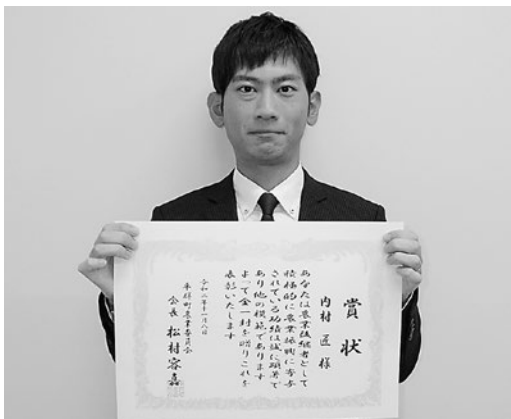 賞状
内村 匠 様
あなたは農業後継者として
積極的に農業振興に寄与
されている功績は誠に顕著で
あり他の模範であります
よって金一封を贈りこれを
表彰いたします
令和二年十一月八日
平群町農業委員会
会長 松村容嘉